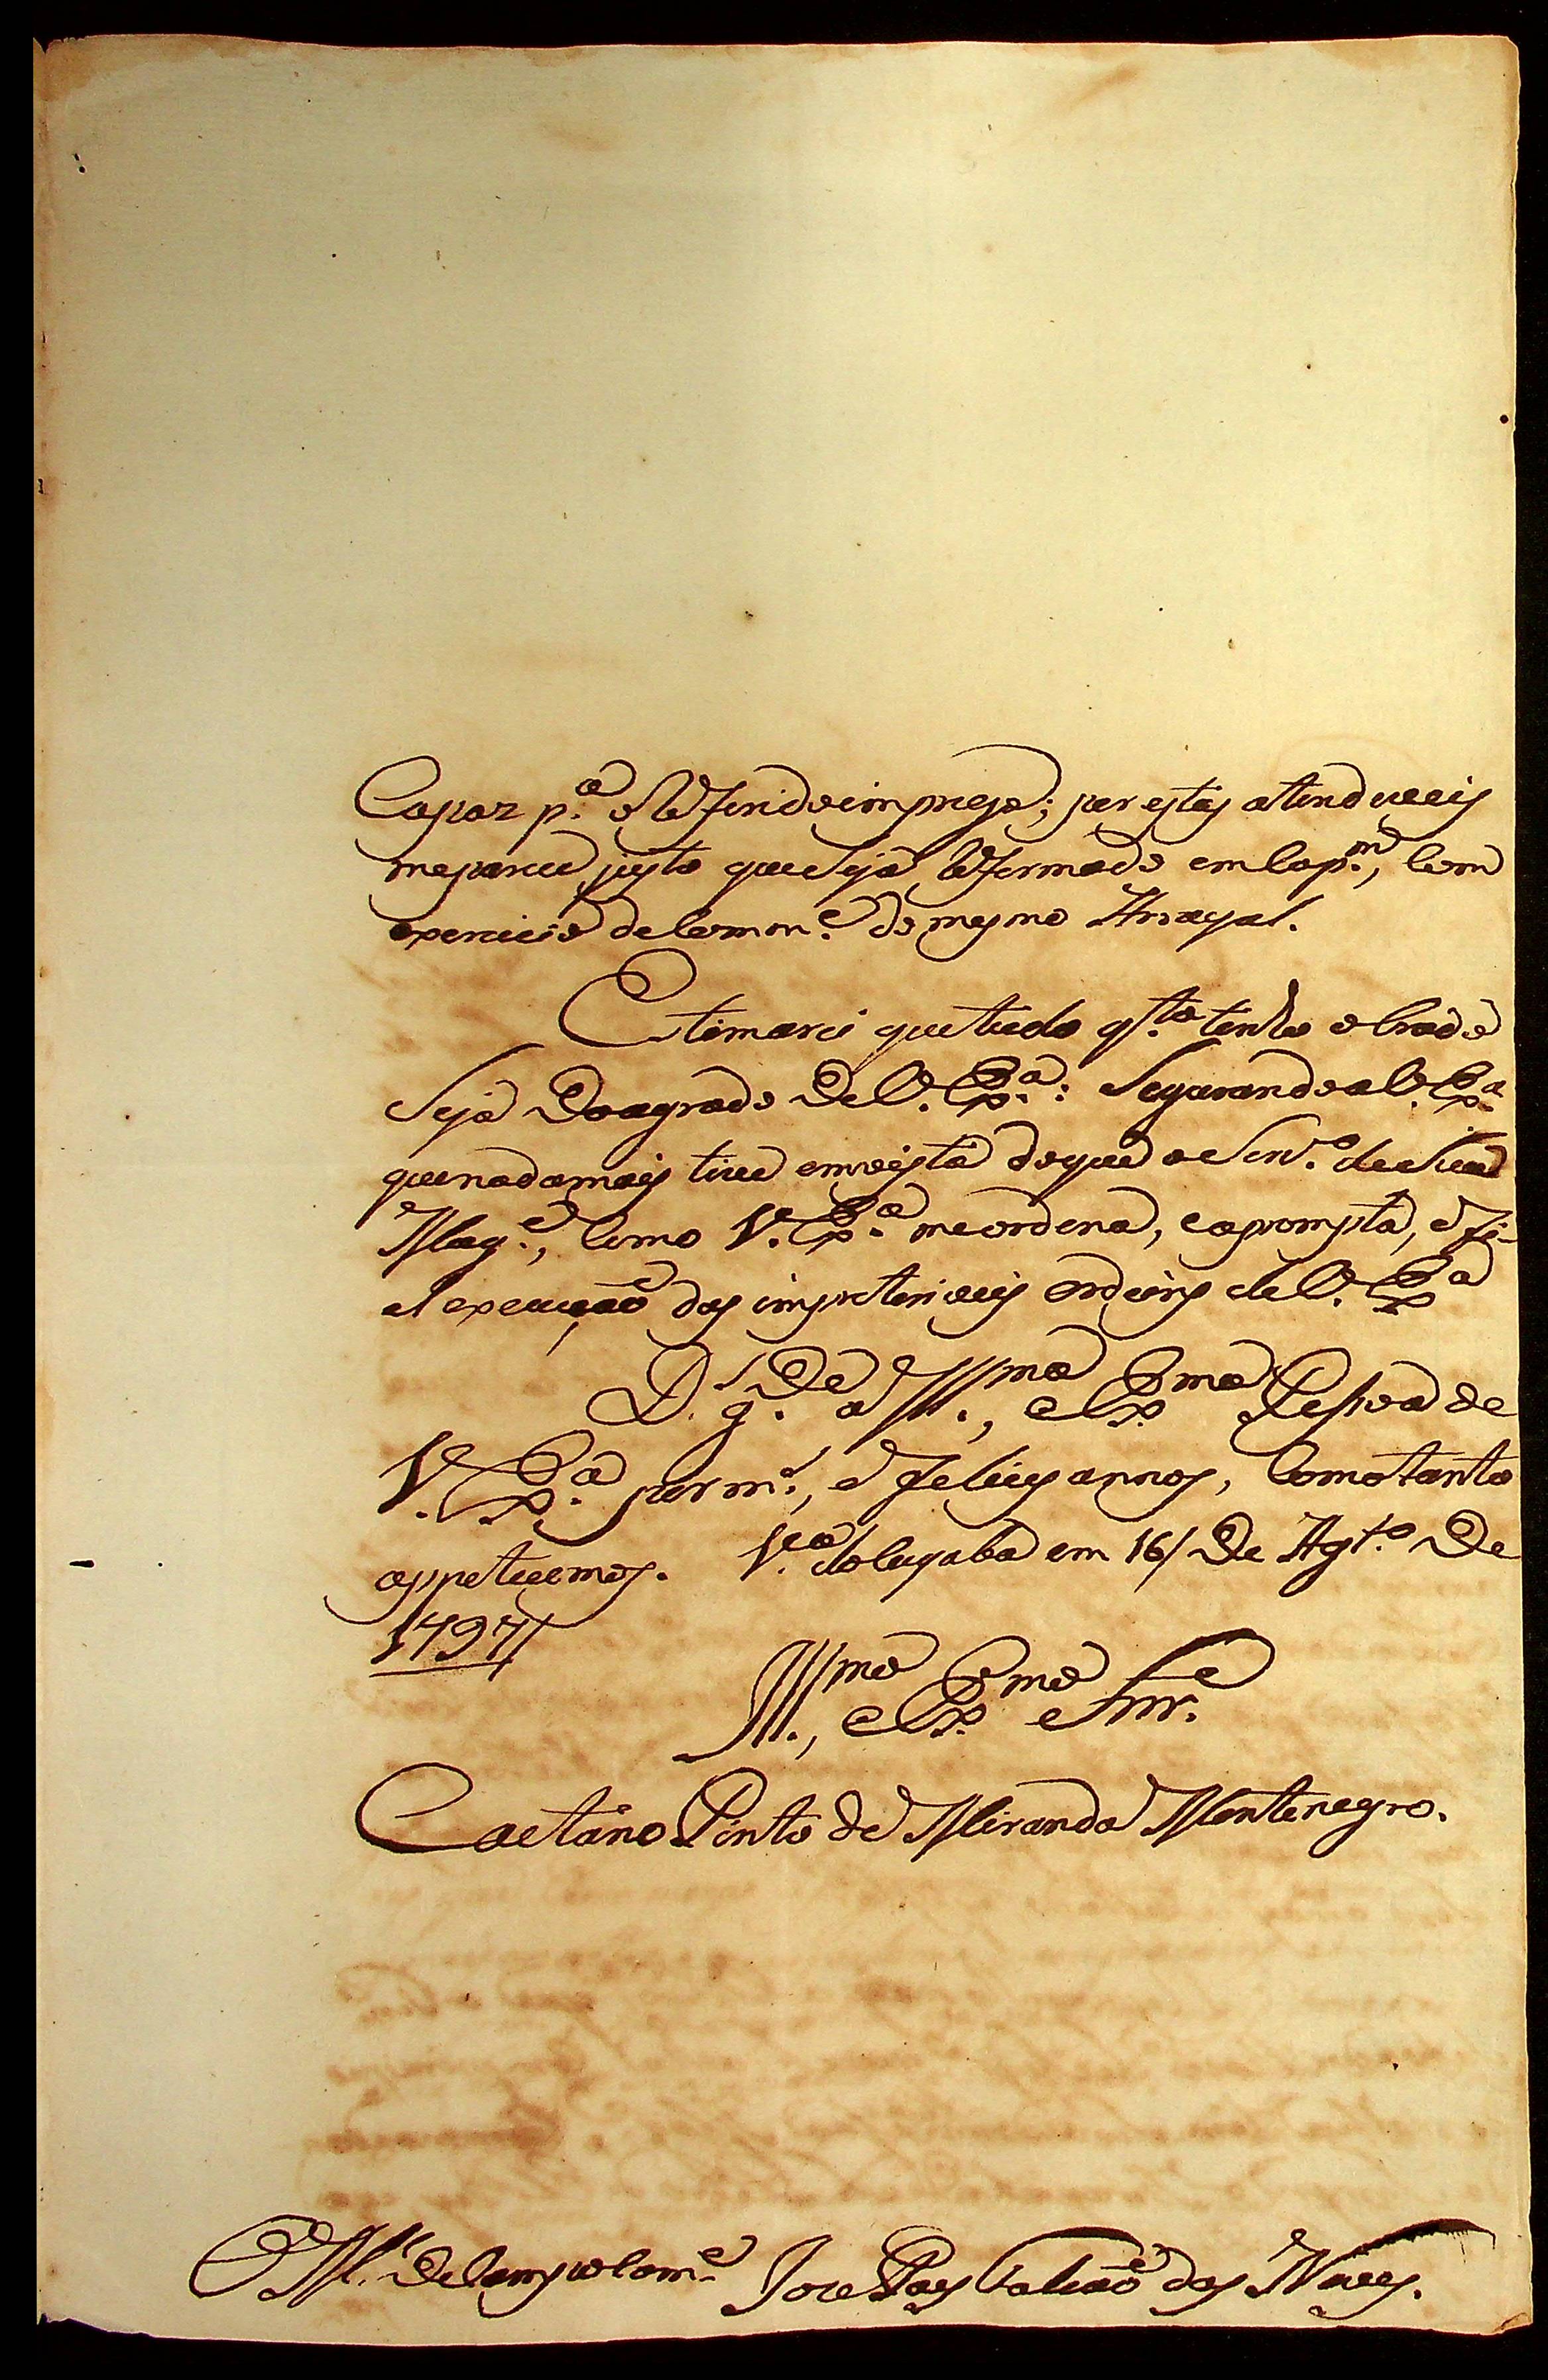 Capaz p.ª o Referido imprego; por estes atendiveis
me pareceu justo que Seja Reformado em Cap.m, Com
exercicio de Comm.e do mesmo Arrayal.
Estimarei que tudo q.to tenho obrado
Seja Do agrado De V. Ex.ª: Segurando a V. Ex.ª
que nada mais tive em vista do que o Serv.º de Sua
Mag.e, Como V. Ex.ª me ordena, e a prompta, e fi-
el execução das impreteriveis ordens de V. Ex.ª
D.s g.De a Ill.ma, e Ex.ma Pessoa de
V. Ex.ª por m.s, e felices annos, Como tanto
appetecemos. V.ª do Cuyabá em 16 De Agt.º De
1797
Ill.mo, e Ex.mo Snr.
Caetano Pinto de Miranda Montenegro.
O M.e De Campo Com.e Joze Paes Falcão das Neves.